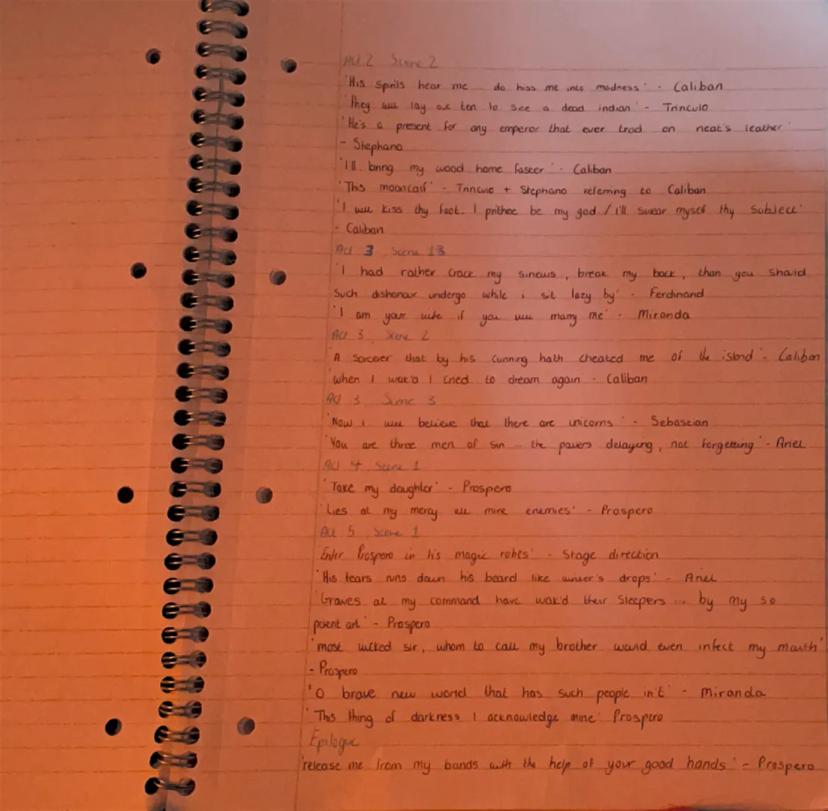 Act 2 Scene 2
'His spirits hear me ... do hiss me into madness' - Caliban
'They will lay out ten to see a dead indian' - Trinculo
'He's a present for any emperor that ever trod on neat's leather'
- Stephano
'I'll bring my wood home faster' - Caliban
'This mooncalf' - Trinculo + Stephano referring to Caliban
'I will kiss thy foot. I prithee be my god / I'll swear myself thy subject'
- Caliban
Act 3 Scene 1
'I had rather crack my sinews, break my back, than you should
such dishonour undergo while i sit lazy by' - Ferdinand
'I am your wife if you will marry me' - Miranda
Act 3 Scene 2
'A sorcerer that by his cunning hath cheated me of the island' - Caliban
'when I wak'd I cried to dream again - Caliban
Act 3 Scene 3
'Now i will believe that there are unicorns' - Sebastian
'You are three men of sin ... the powers delaying, not forgetting' - Ariel
Act 4 Scene 1
'Take my daughter' - Prospero
'Lies at my mercy all mine enemies' - Prospero
Act 5 Scene 1
'Enter Prospero in his magic robes' - Stage direction
'His tears runs down his beard like winter's drops' - Ariel
'Graves at my command have wak'd their sleepers ... by my so
potent art' - Prospero
'most wicked sir, whom to call my brother would even infect my mouth'
- Prospero
'O brave new world that has such people in't' - Miranda
'This thing of darkness I acknowledge mine' Prospero
Epilogue
'release me from my bands with the help of your good hands' - Prospero